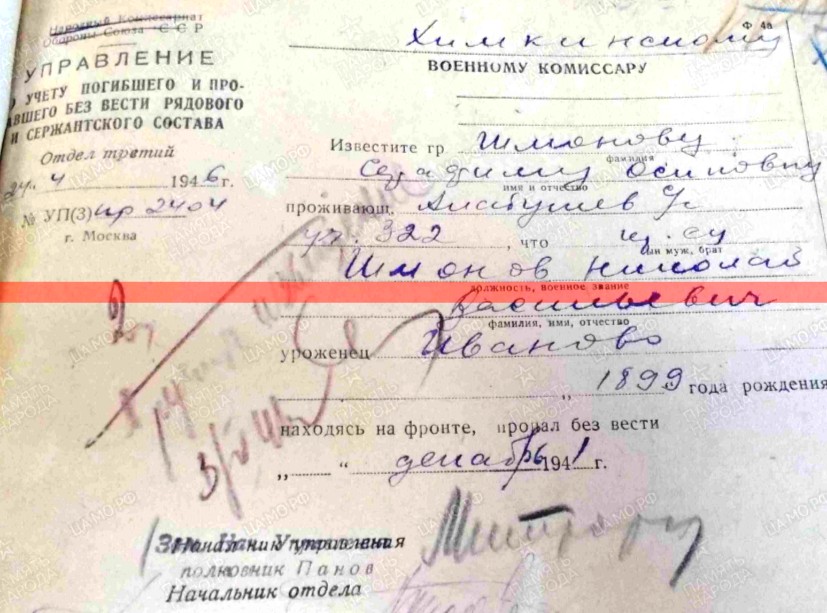 Народный Комиссариат
Обороны Союза ССР
УПРАВЛЕНИЕ
УЧЕТУ ПОГИБШЕГО И ПРО-
ПАВШЕГО БЕЗ ВЕСТИ РЯДОВОГО
И СЕРЖАНТСКОГО СОСТАВА
Отдел третий
24. 4 1946 г.
№ УП(3) нр 2404
г. Москва
Ф 4а
Химкинскому
ВОЕННОМУ КОМИССАРУ
Известите гр. Шмонову
фамилия
Серафиму Осиповну
имя и отчество
проживающ.
322, что
сын муж, брат
Шмонов Николай
должность, военное звание
Васильевич
фамилия, имя, отчество
уроженец Иваново
„ 1899 года рождения
находясь на фронте, пропал без вести
„ “ декабрь 1941 г.
Зам. Нач. Управления
полковник Панов
Начальник отдела
ЦАМО.РФ
ПАМЯТЬ НАРОДА